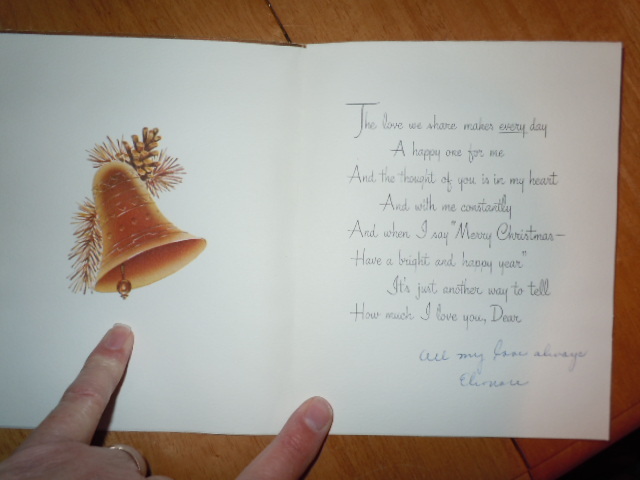 The love we share makes every day
A happy one for me
And the thought of you is in my heart
And with me constantly
And when I say "Merry Christmas—
Have a bright and happy year"
It's just another way to tell
How much I love you, Dear
All my love always
Elinore